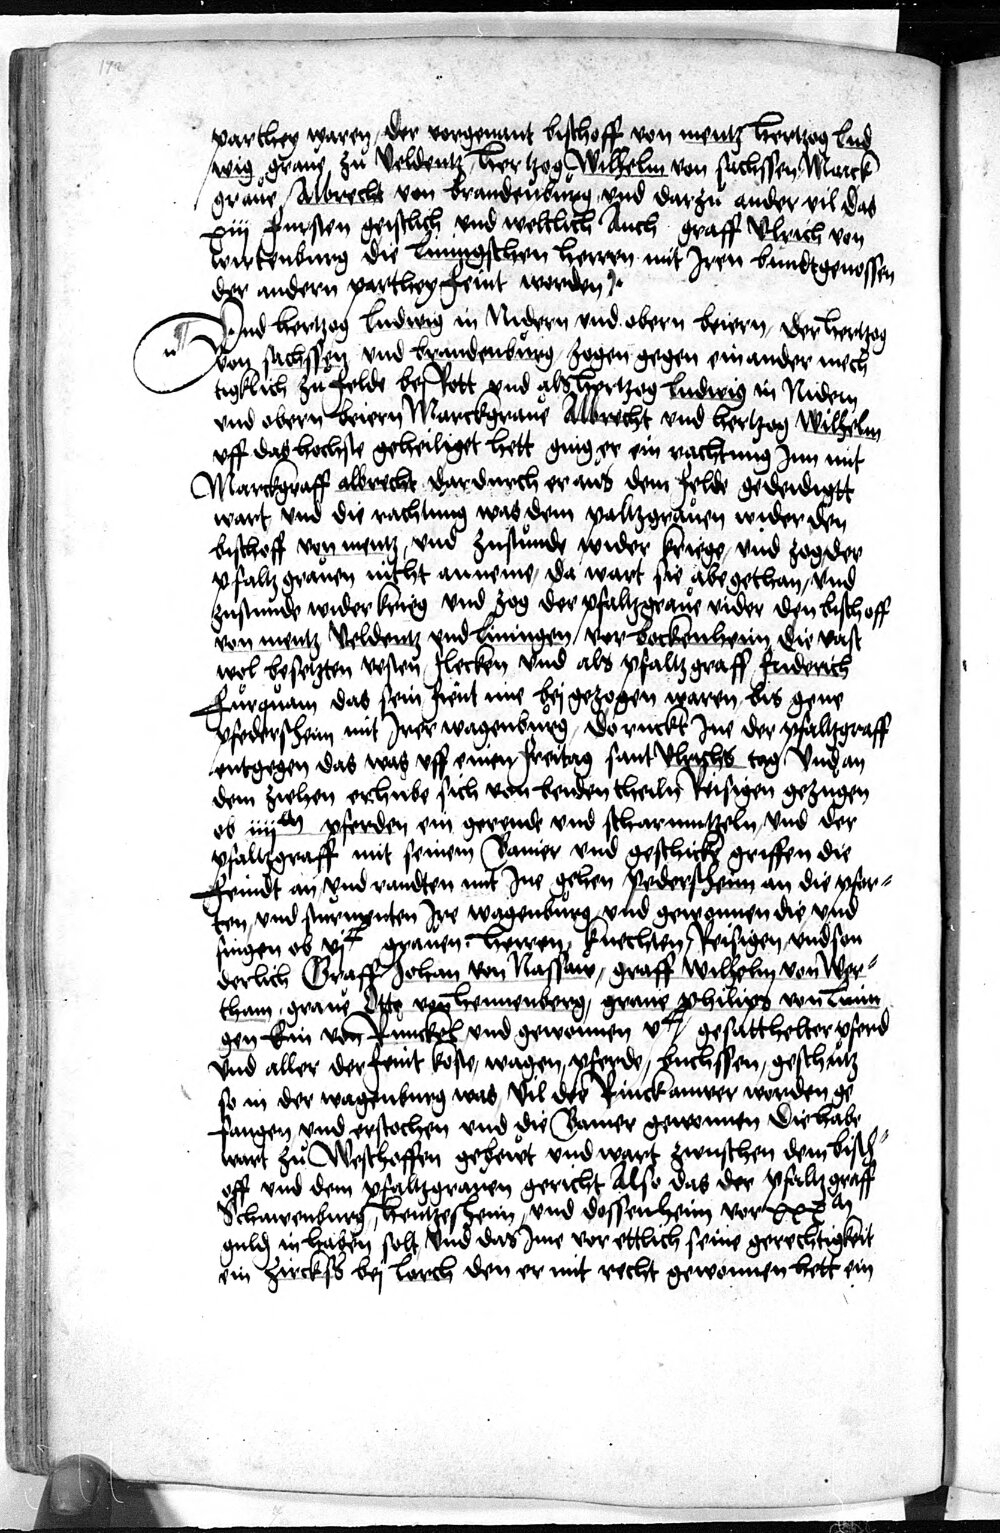 172
parthey waren, der vorgenant bischoff von mentz hertzog Lud
wig graue zu Veldentz hertzog Wilhelm von sachssen Marck
graue Albrecht von brandenburg, vnd darzu ander vil das
xiij fursten geistlich vnd weltlich Auch graff Vlrich von
wirtenburg die liningschen herren mit Iren bundtgenossen
der andern parthey feint worden
Vnd hertzog ludwig in Nidern vnd obern beiern, der hertzog
von sachssen vnd brandenburg, zogen gegen ein ander mech
tigklich zu felde bei Rott vnd als hertzog ludwig in Nidern
vnd obern beiern Marckgraue Albrecht vnd hertzog Wilhelm
vff das hochste geheiliget hett ging er ein rachtung Inn mit
Marckgraff albrecht dardurch er aus dem felde gedeidigtt
wart vnd die rachtung was dem paltzgrauen wider den
bischoff von mentz, vnd zustunde wider kriege, vnd zog der
pfaltzgrauen nicht anneme, da wart sie abe gethan, vnd
zustunde wider krieg vnd zog der pfaltzgraue wider den bischoff
von mentz Veldentz vnd liningen, vor bockenheim, die vast
wol besetzten vesten flecken vnd als pfaltzgraff friderich
furquam das sein feint ime bej gezogen waren, bis gene
pfedersheim mit Irer wagenburg, do ruckt Ine der pfaltzgraff
entgegen das was vff einen freitag sant Vlrichs tag Vnd an
dem ziehen erhube sich von beiden theiln Reisigen gezugen
ob iiij^m pferden ein gerende vnd scharmutzeln, vnd der
pfaltzgraff mit seinem Banier vnd geschicke griffen die
feindt an vnd randten mit Ine gehen pedersheim an die pfor=
ten, vnd sturmpten Ire wagenburg, vnd gewonnen die vnd
fingen ob vj^c grauen, herren, knechten, Reisigen, vnd son
derlich Graff Johan von Nassaw, graff Wilhelm von Wer=
tham, graue Otte von hennenberg, graue philips von linin
gen hin von Runckel vnd gewonnen v^c gesatthelter pferd
vnd aller der feint koste, wagen, pferde, buchssen, geschutz
so in der wagenburg was, Vil der Rinckauwer worden ge
fangen, vnd erstochen vnd die Banier gewonnen Die habe
wart zu Westhoffen gebeut vnd wart zwuschen dem bisch=
off vnd dem pfaltzgrauen gericht Also das der pfaltzgraff
Schawenburg, hentzesheim, vnd dossenheim vor xxx^m
guld in haben solt, Vnd das Ime vor ettlich seine gerechtigkeit
ein Zirckß bej Lorch den er mit recht gewonnen hett ein